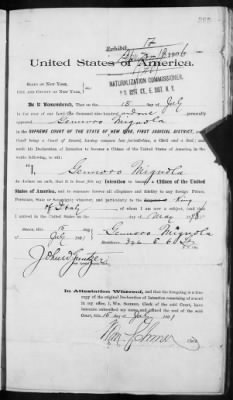 Exhibit 17
United States of America.
NATURALIZATION COMMISSIONER,
STATE OF NEW YORK,
CITY AND COUNTY OF NEW YORK,
Be it Remembered, That on the 15 day of July
in the year of our Lord one thousand nine hundred and one personally
appeared Gennaro Mignola in
the SUPREME COURT OF THE STATE OF NEW YORK, FIRST JUDICIAL DISTRICT,
Court being a Court of Record, having common law jurisdiction, a Clerk and a Seal; and
made his Declaration of Intention to become a Citizen of the United States of America in the
words following, to wit:
I, Gennaro Mignola
do declare on oath, that it is bona fide my Intention to become a Citizen of the United
States of America, and to renounce forever all allegiance and fidelity to any foreign Prince,
Potentate, State or Sovereignty whatever, and particularly to the King
of Italy of whom I am now a subject, and that
I arrived in the United States on the day of May
Sworn, this 15
July 1901
Gennaro Mignola
Residence: 326 E 60 St
In Attestation Whereof, and that the foregoing is a true
copy of the original Declaration of Intention remaining of record
in my office, I, Wm. Sohmer, Clerk of the said Court, have
hereunto subscribed my name and affixed the seal of the
said Court, this 15 day July 1901
Wm. Sohmer
Clerk.